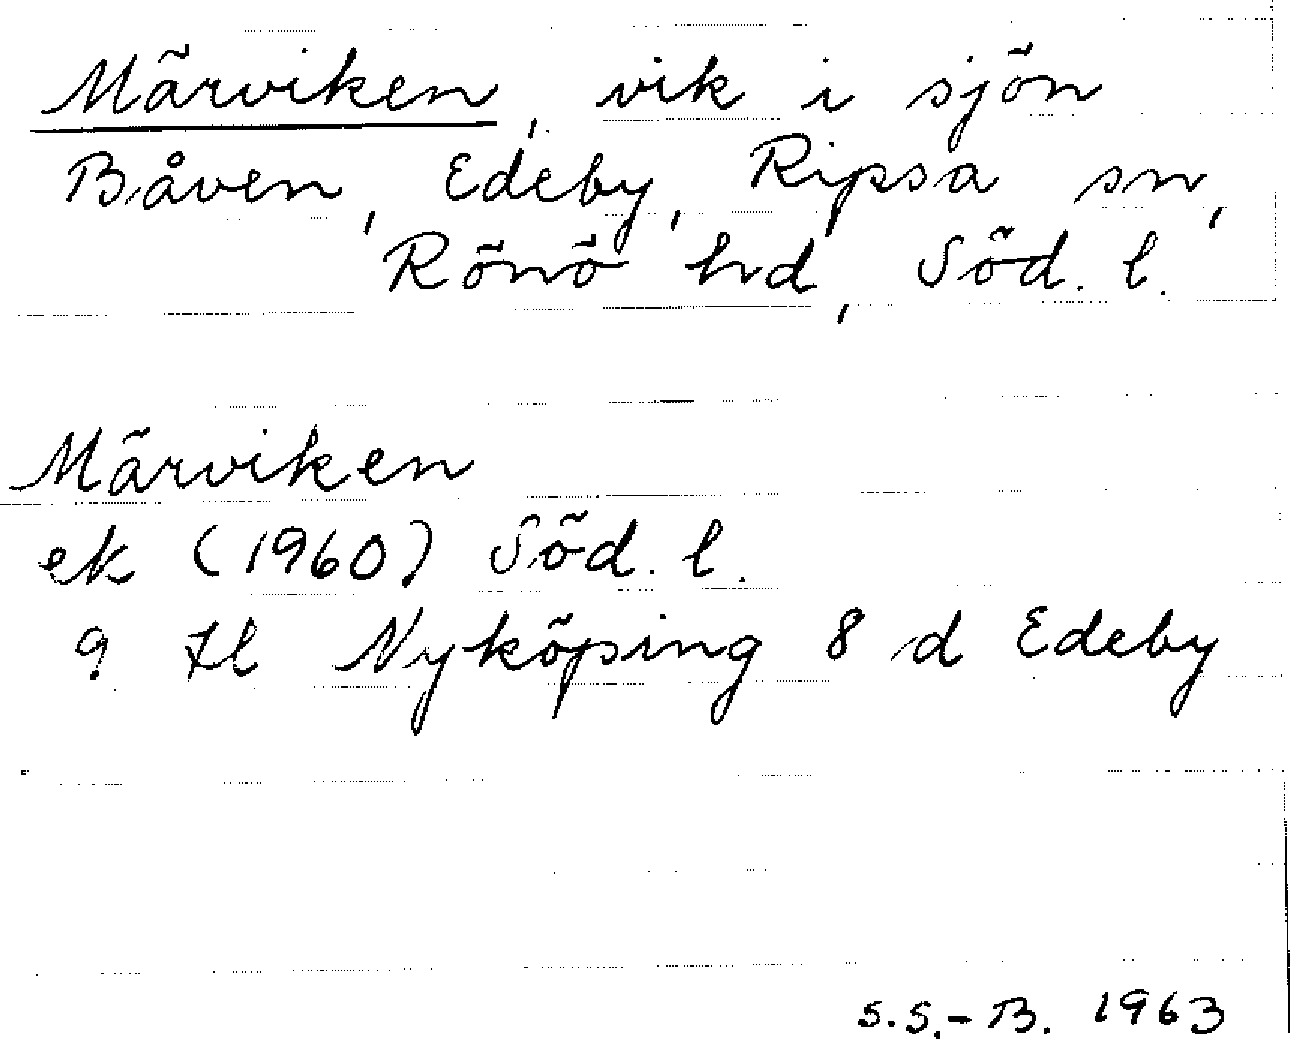 Märviken, vik i sjön
Båven, Edeby, Ripsa sn,
Rönö hd, Söd. l.
Märviken
ek (1960) Söd. l.
9 H Nyköping 8 d Edeby
S.S.-B. 1963